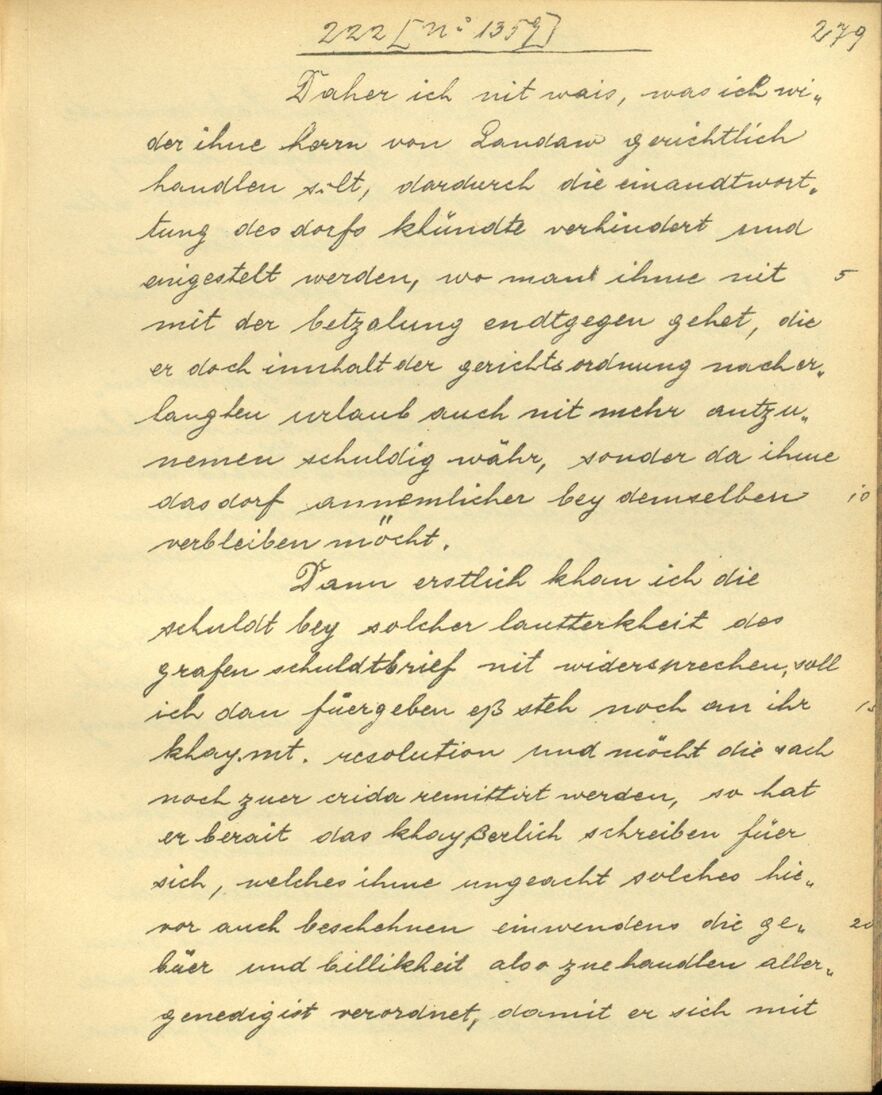 222 [N° 1359] 279
Daher ich nit wais, was ich wi„
der ihne herrn von Landaw gerichtlich
handlen solt, dardurch die einandtwort„
tung des dorfs khündte verhindert und
eingestelt werden, wo man ihme nit 5
mit der betzalung endtgegen gehet, die
er doch innhalt der gerichtsordnung nach er„
langten urlaub auch nit mehr antzu„
nemen schuldig währ, sonder da ihme
das dorf annemlicher bey demselben 10
verbleiben möcht.
Dann erstlich khan ich die
schuldt bey solcher lautterkheit des
grafen schuldtbrief nit widersprechen, soll
ich dan füergeben eß steh noch an ihr 15
khay. mt. resolution und möcht die sach
noch zuer crida remittirt werden, so hat
er berait das khayßerlich schreiben füer
sich, welches ihme ungeacht solches hie„
vor auch beschehnen einwendens die ge„ 20
büer und billikheit also zue handlen aller„
genedigist verordnet, damit er sich mit